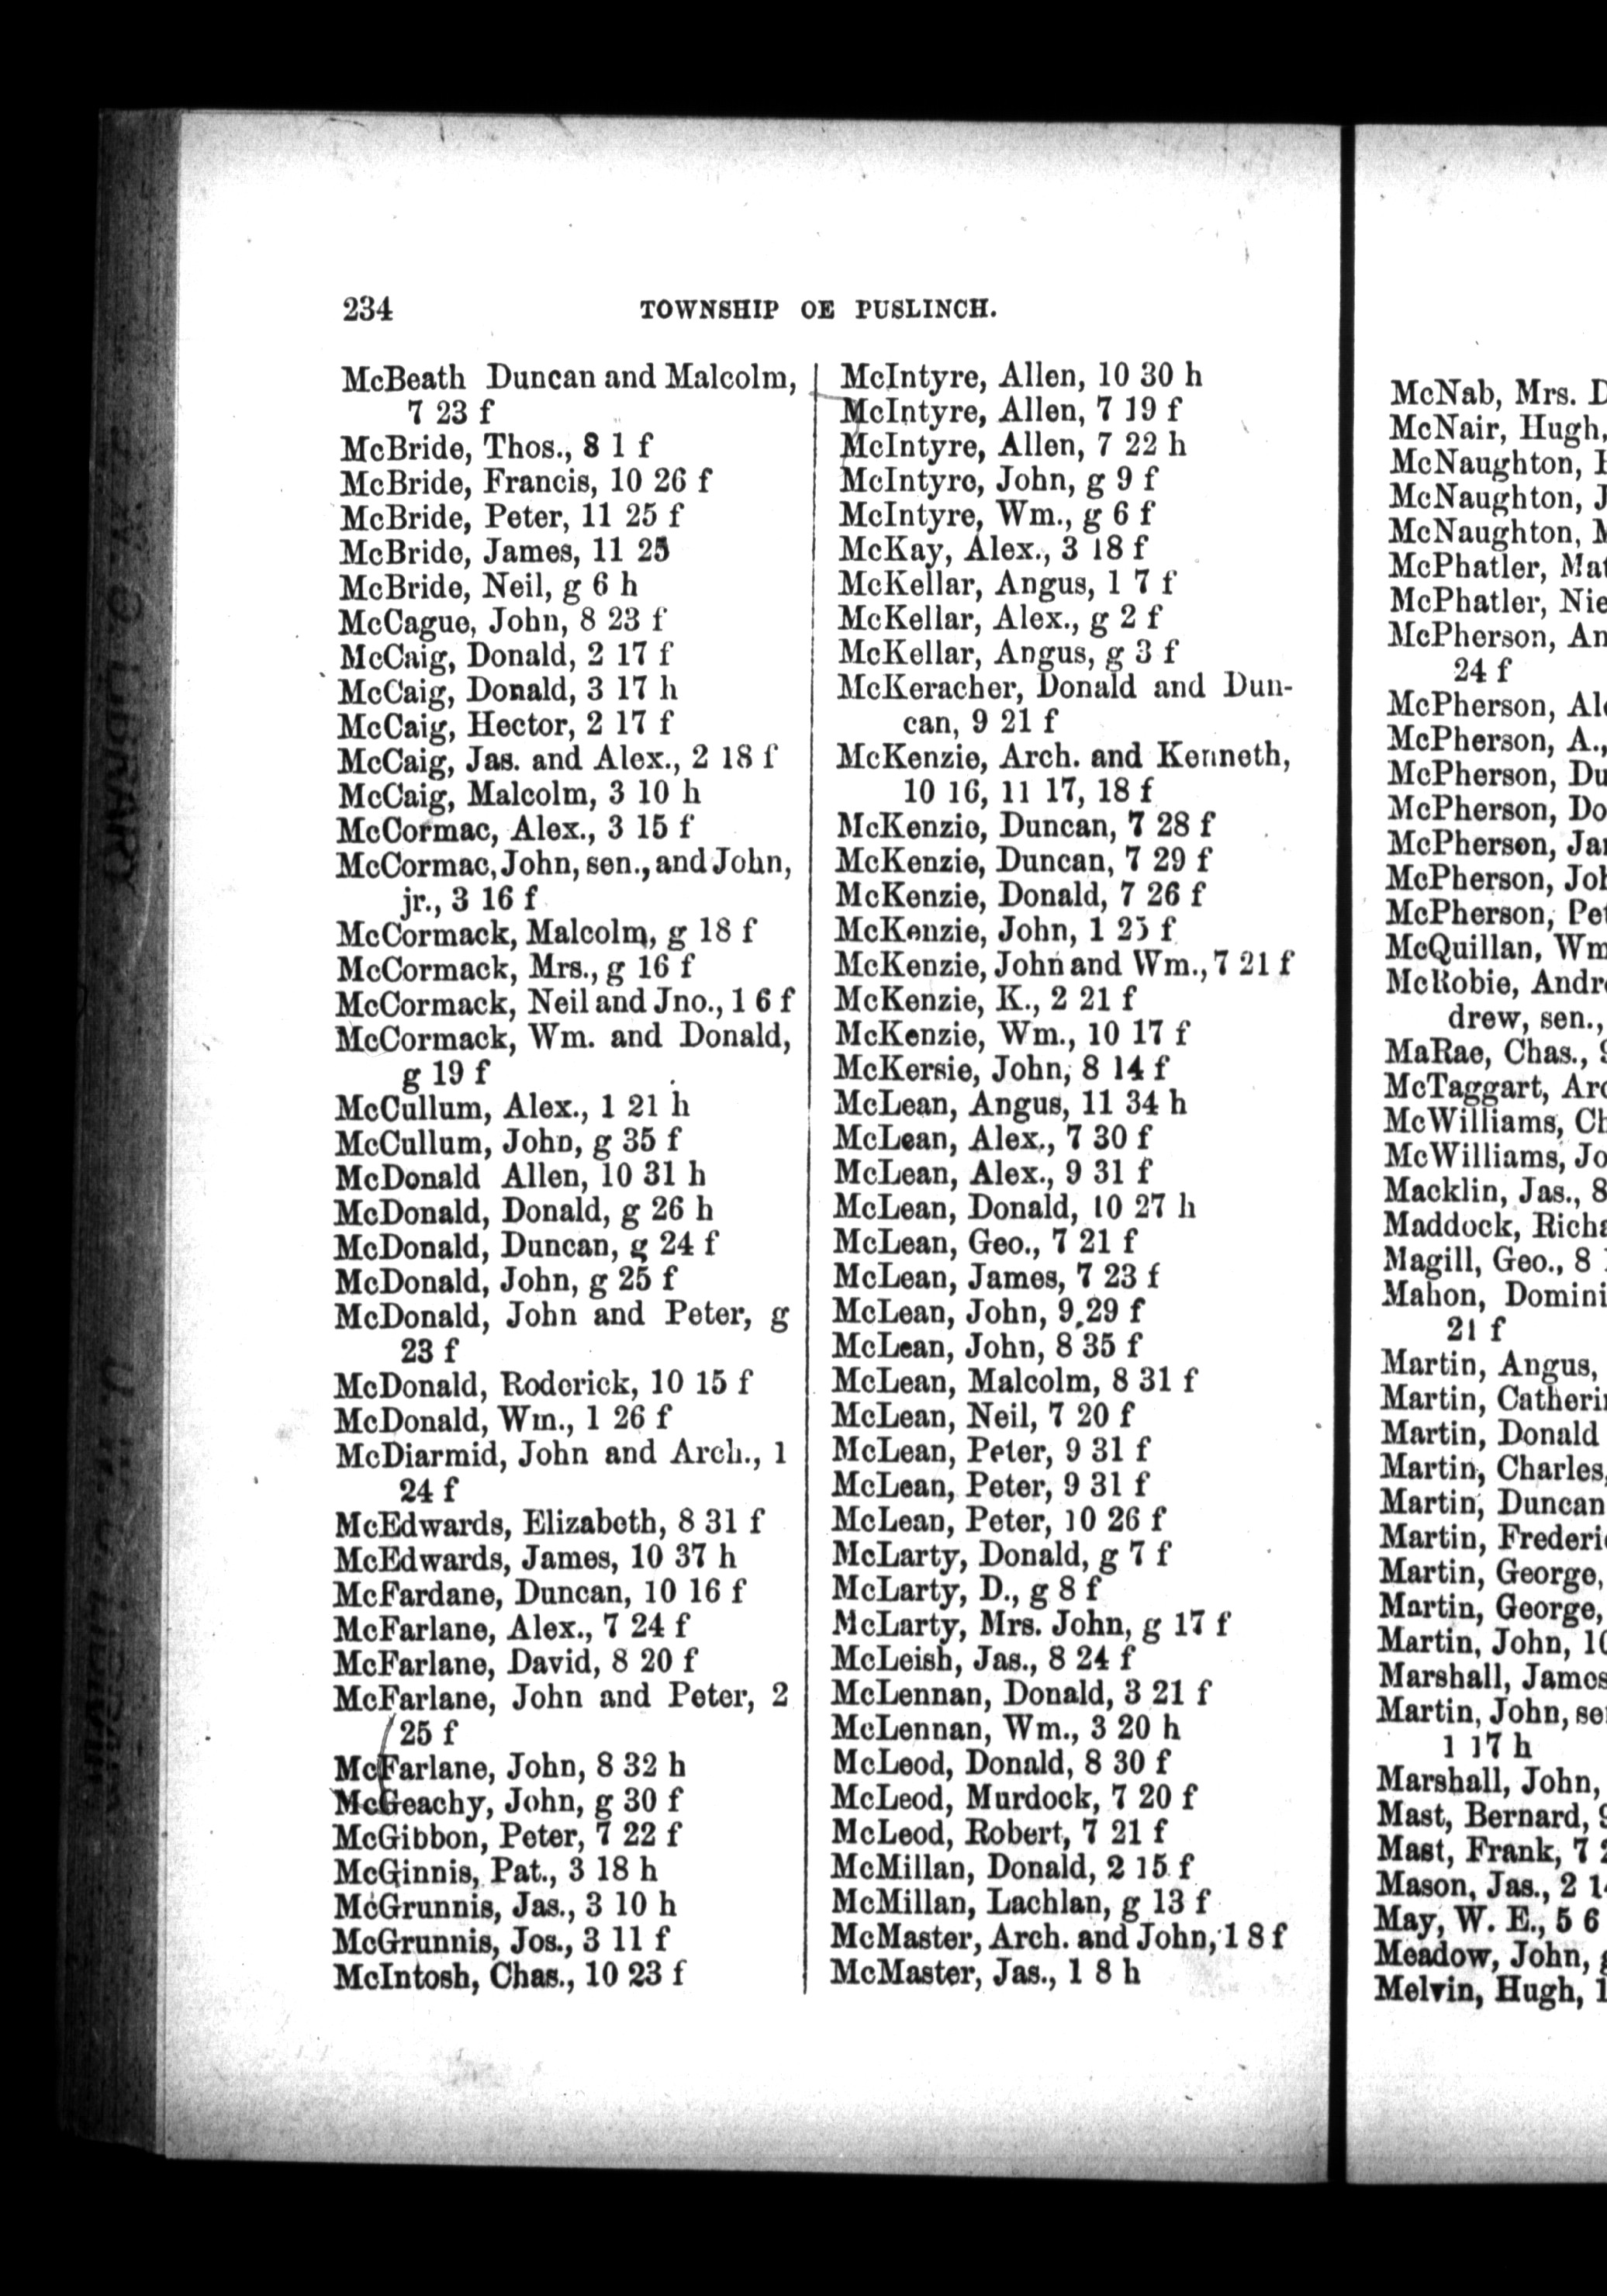 234
TOWNSHIP OE PUSLINCH.
McBeath Duncan and Malcolm,
7 23 f
McBride, Thos., 8 1 f
McBride, Francis, 10 26 f
McBride, Peter, 11 25 f
McBride, James, 11 25
McBride, Neil, g 6 h
McCague, John, 8 23 f
McCaig, Donald, 2 17 f
McCaig, Donald, 3 17 h
McCaig, Hector, 2 17 f
McCaig, Jas. and Alex., 2 18 f
McCaig, Malcolm, 3 10 h
McCormac, Alex., 3 15 f
McCormac, John, sen., and John,
jr., 3 16 f
McCormack, Malcolm, g 18 f
McCormack, Mrs., g 16 f
McCormack, Neil and Jno., 1 6 f
McCormack, Wm. and Donald,
g 19 f
McCullum, Alex., 1 21 h
McCullum, John, g 35 f
McDonald Allen, 10 31 h
McDonald, Donald, g 26 h
McDonald, Duncan, g 24 f
McDonald, John, g 25 f
McDonald, John and Peter, g
23 f
McDonald, Roderick, 10 15 f
McDonald, Wm., 1 26 f
McDiarmid, John and Arch., 1
24 f
McEdwards, Elizabeth, 8 31 f
McEdwards, James, 10 37 h
McFardane, Duncan, 10 16 f
McFarlane, Alex., 7 24 f
McFarlane, David, 8 20 f
McFarlane, John and Peter, 2
25 f
McFarlane, John, 8 32 h
McGeachy, John, g 30 f
McGibbon, Peter, 7 22 f
McGinnis, Pat., 3 18 h
McGrunnis, Jas., 3 10 h
McGrunnis, Jos., 3 11 f
McIntosh, Chas., 10 23 f
McIntyre, Allen, 10 30 h
McIntyre, Allen, 7 19 f
McIntyre, Allen, 7 22 h
McIntyre, John, g 9 f
McIntyre, Wm., g 6 f
McKay, Alex., 3 18 f
McKellar, Angus, 1 7 f
McKellar, Alex., g 2 f
McKellar, Angus, g 3 f
McKeracher, Donald and Dun-
can, 9 21 f
McKenzie, Arch. and Kenneth,
10 16, 11 17, 18 f
McKenzie, Duncan, 7 28 f
McKenzie, Duncan, 7 29 f
McKenzie, Donald, 7 26 f
McKenzie, John, 1 25 f
McKenzie, John and Wm., 7 21 f
McKenzie, K., 2 21 f
McKenzie, Wm., 10 17 f
McKersie, John, 8 14 f
McLean, Angus, 11 34 h
McLean, Alex., 7 30 f
McLean, Alex., 9 31 f
McLean, Donald, 10 27 h
McLean, Geo., 7 21 f
McLean, James, 7 23 f
McLean, John, 9 29 f
McLean, John, 8 35 f
McLean, Malcolm, 8 31 f
McLean, Neil, 7 20 f
McLean, Peter, 9 31 f
McLean, Peter, 9 31 f
McLean, Peter, 10 26 f
McLarty, Donald, g 7 f
McLarty, D., g 8 f
McLarty, Mrs. John, g 17 f
McLeish, Jas., 8 24 f
McLennan, Donald, 3 21 f
McLennan, Wm., 3 20 h
McLeod, Donald, 8 30 f
McLeod, Murdock, 7 20 f
McLeod, Robert, 7 21 f
McMillan, Donald, 2 15 f
McMillan, Lachlan, g 13 f
McMaster, Arch. and John, 1 8 f
McMaster, Jas., 1 8 h
McNab, Mrs.
McNair, Hugh,
McNaughton,
McNaughton,
McNaughton,
McPhatler,
McPhatler,
McPherson,
24 f
McPherson,
McPherson, A.,
McPherson,
McPherson,
McPherson,
McPherson,
McPherson,
McQuillan,
McRobie,
drew, sen.,
MaRae, Chas.,
McTaggart,
McWilliams,
McWilliams,
Macklin, Jas., 8
Maddock,
Magill, Geo., 8
Mahon,
21 f
Martin, Angus,
Martin,
Martin, Donald
Martin, Charles,
Martin, Duncan
Martin,
Martin, George,
Martin, George,
Martin, John,
Marshall, James
Martin, John,
1 17 h
Marshall, John,
Mast, Bernard,
Mast, Frank, 7
Mason, Jas., 2
May, W. E., 5 6
Meadow, John,
Melvin, Hugh,